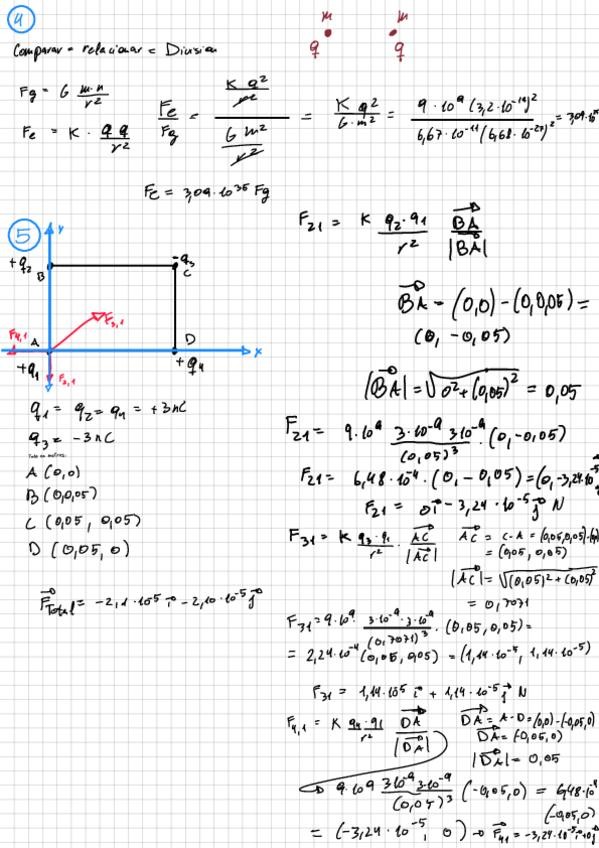 4
m m
q q
Comparar = relacionar = Division
Fg = G m·m / r²
Fe = K · q q / r²
Fe / Fg = (K q² / r²) / (G m² / r²) = K q² / G·m² = 9·10⁹ (3,2·10⁻¹⁹)² / 6,67·10⁻¹¹ (6,68·10⁻²⁷)² =
Fe = 3,09·10³⁵ Fg
5
y
+q2
B
-q3
C
F4,1
A
F3,1
D
x
+q1
F2,1
+q4
q1 = q2 = q4 = +3nC
q3 = -3nC
A (0,0)
B (0,0,05)
C (0,05, 0,05)
D (0,05, 0)
F⃗Total = -2,1·10⁻⁵ i⃗ - 2,10·10⁻⁵ j⃗
F21 = K q2·q1 / r² BA⃗ / |BA⃗|
BA⃗ = (0,0) - (0,0,05) =
(0, -0,05)
|BA⃗| = √0² + (0,05)² = 0,05
F21 = 9·10⁹ 3·10⁻⁹ 3·10⁻⁹ / (0,05)³ · (0, -0,05)
F21 = 6,48·10⁻⁴ · (0, -0,05) = (0, -3,24·10⁻⁵
F21 = 0i⃗ - 3,24·10⁻⁵ j⃗ N
F31 = K q3·q1 / r² · AC⃗ / |AC⃗|
AC⃗ = C-A = (0,05,0,05)-
= (0,05, 0,05)
|AC⃗| = √(0,05)² + (0,05)²
= 0,7071
F31 = 9·10⁹ · 3·10⁻⁹·3·10⁻⁹ / (0,7071)³ · (0,05, 0,05) =
= 2,24·10⁻⁴ (0,05, 0,05) = (1,14·10⁻⁵, 1,14·10⁻⁵)
F31 = 1,14·10⁵ i⃗ + 1,14·10⁻⁵ j⃗ N
F4,1 = K q4·q1 / r² DA⃗ / |DA⃗|
DA⃗ = A-D = (0,0)-(-0,05,0)
DA⃗ = (-0,05,0)
|DA⃗| = 0,05
→ 9·10⁹ 3·10⁻⁹ 3·10⁻⁹ / (0,05)³ (-0,05,0) =
(-0,05,0)
= (-3,24·10⁻⁵, 0) → F⃗41 = -3,24·10⁻⁵